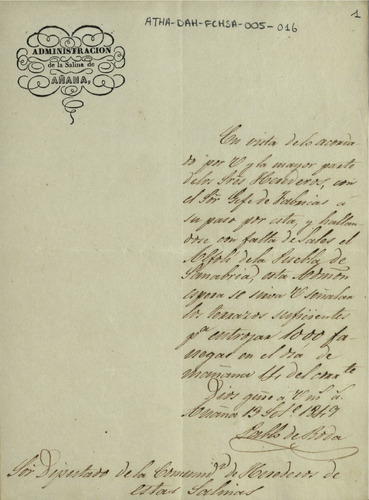 ATHA-DAH-FCHSA-005-016
1
ADMINISTRACION
de la Salina de
AÑANA,
En vista de lo acorda-
do por V y la mayor parte
de los Sres Herederos, con
el Sor Gefe de Fabricas á
su paso por esta, y hallan-
dose con falta de Sales el
Alfolí de la Puebla de
Sanabria, esta Admon
espera se sirva V señalar
los terrazos suficientes
pa entrojar 1000 fa-
negas en el dia de
mañana 14 del corrte
Dios gue á V ms as
Añana 13 1849
Pablo de Roda
Sor Diputado de la Comunidad de Herederos de
estas Salinas